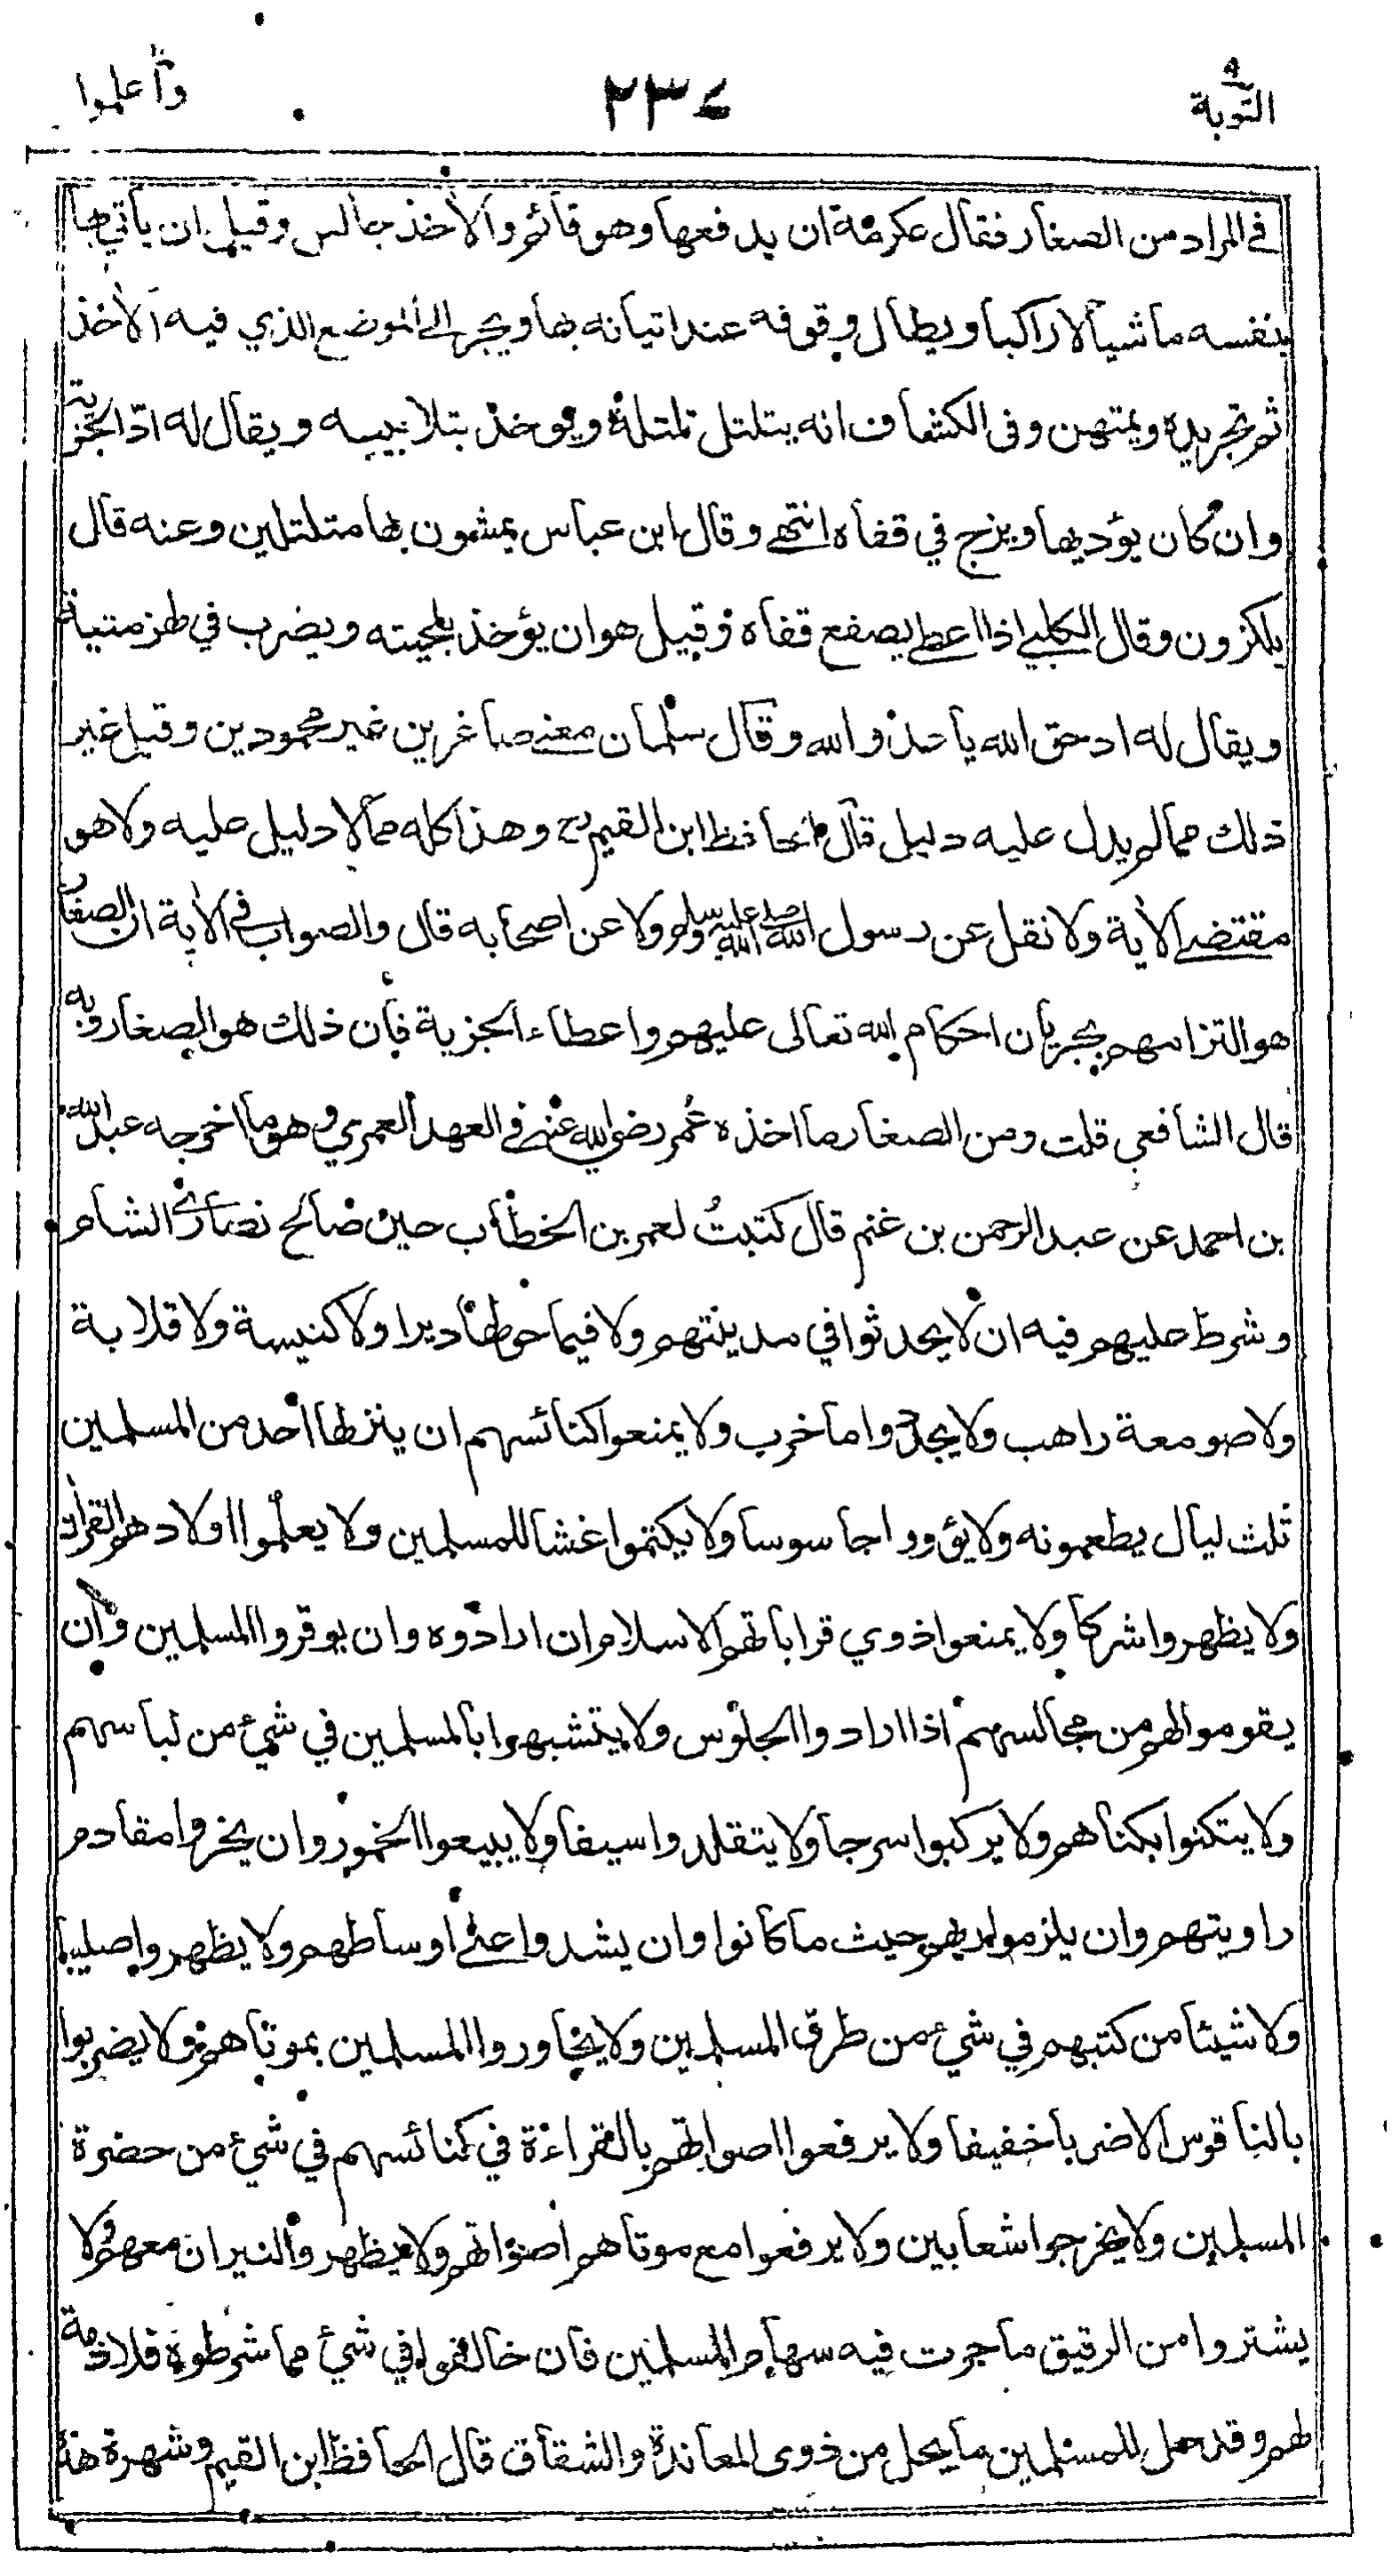 التوبة ٩
٢٣٤
واعلموا
في المراد من الصغار فقال عكرمة ان يدفعها وهو قائم والأخذ جالس وقيل ان يأتي بها
بنفسه ماشيا لا راكبا ويطال وقوفه عند اتيانه بها ويجر الى الموضع الذي فيه الأخذ
ثم تجر يده ويمتهن وفى الكشاف انه يتلتل تلتلة ويوخذ بتلابيبه ويقال له ادّ الجزية
وان كان يؤديها ويزج في قفاه انتهى وقال ابن عباس يمشون بها متلتلين وعنه قال
يلكزون وقال الكلبي اذا اعطى يصفع قفاه وقيل هو ان يؤخذ بلحيته ويضرب في لهزمتيه
ويقال له اد حق الله يا عدو الله وقال سلمان معنى صاغرين غير محمودين وقيل غير
ذلك مما لم يدل عليه دليل قال الحافظ ابن القيم رح وهذا كله مما لا دليل عليه ولا هو
مقتضى الأية ولا نقل عن رسول الله صلى الله عليه وسلم ولا عن اصحابه قال والصواب في الأية ان الصغار
هو التزامهم بجريان احكام الله تعالى عليهم واعطاء الجزية فان ذلك هو الصغار وبه
قال الشافعي قلت ومن الصغار ما اخذه عُمر رضي الله عنه في العهد العمري وهو ما اخرجه عبد الله
بن احمد عن عبد الرحمن بن غنم قال كتبتُ لعمر بن الخطاب حين صالح نصارى الشام
وشرط عليهم فيه ان لا يحدثوا في مدينتهم ولا فيما حولها ديرا ولا كنيسة ولا قلابة
ولا صومعة راهب ولا يجددوا ما خرب ولا يمنعوا كنائسهم ان ينزلها احد من المسلمين
ثلث ليال يطعمونه ولا يؤووا جاسوسا ولا يكتموا غشا للمسلمين ولا يعلّموا اولادهم القرأن
ولا يظهروا شركا ولا يمنعوا ذوي قراباتهم الاسلام ان ارادوه وان يوقروا المسلمين وان
يقوموا لهم من مجالسهم اذا ارادوا الجلوس ولا يتشبهوا بالمسلمين في شئ من لباسهم
ولا يتكنوا بكناهم ولا يركبوا سرجا ولا يتقلدوا سيفا ولا يبيعوا الخمور وان يجزوا مقادم
راويتهم وان يلزموا زيهم حيث ما كانوا وان يشدوا على اوساطهم ولا يظهروا صليبا
ولا شيئا من كتبهم في شيء من طرق المسلمين ولا يجاوروا المسلمين بموتاهم ولا يضربوا
بالناقوس الا ضربا خفيفا ولا يرفعوا اصواتهم بالقراءة في كنائسهم في شيء من حضرة
المسلمين ولا يخرجوا شعابين ولا يرفعوا مع موتاهم اصواتهم ولا يظهروا النيران معهم ولا
يشتروا من الرقيق ما جرت فيه سهام المسلمين فان خالفوا في شئ مما شرطوه فلا ذمة
لهم وقد حل للمسلمين ما يحل من ذوى المعاندة والشقاق قال الحافظ ابن القيم وشهرة هذه